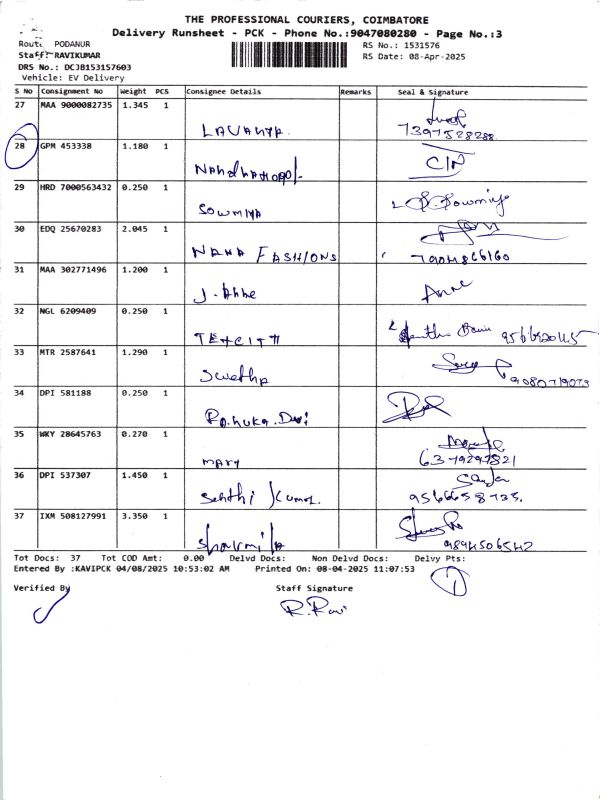 THE PROFESSIONAL COURIERS, COIMBATORE
Delivery Runsheet - PCK - Phone No.:9047080280 - Page No.:3
Route PODANUR
Staff: RAVIKUMAR
DRS No.: DCJB153157603
Vehicle: EV Delivery
RS No.: 1531576
RS Date: 08-Apr-2025
S No Consignment No Weight PCS Consignee Details Remarks Seal & Signature
27 MAA 9000082735 1.345 1
LAVANYA. 7397528288
28 GPM 453338 1.180 1
29 HRD 7000563432 0.250 1
SOWMIYA S. Sowmiya
30 EDQ 25670283 2.045 1
NAHA FASHIONS 7904866160
31 MAA 302771496 1.200 1
J. Anne Anne
32 NGL 6209409 0.250 1
33 MTR 2587641 1.290 1
Swetha 9080719073
34 DPI 581188 0.250 1
35 WKY 28645763 0.270 1
MARY 6379297821
36 DPI 537307 1.450 1
Senthi Kumar 9566658735.
37 IXM 508127991 3.350 1
Sharmila 9894506542
Tot Docs: 37 Tot COD Amt: 0.00 Delvd Docs: Non Delvd Docs: Delvy Pts:
Entered By :KAVIPCK 04/08/2025 10:53:02 AM Printed On: 08-04-2025 11:07:53
Verified By Staff Signature
R. Ravi